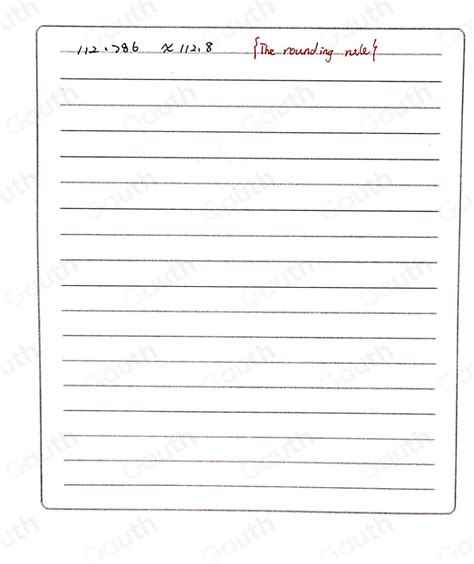 112.786 ≈ 112.8 {The rounding rule}